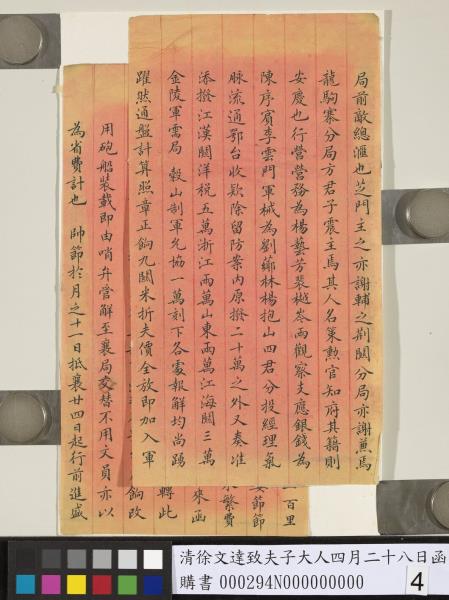 局前敵總滙也芝門主之亦謝輔之荆關分局亦謝薰馬
龍駒寨分局方君子震主焉其人名策勲官知府其籍則
安慶也行營營務為楊藝芳裴樾岑兩觀察支應銀錢為
陳序賓李雲門軍械為劉薌林楊抱山四君分投經理氣
脉流通鄂台收欵除留防案內原撥二十萬之外又奏准
添撥江漢關洋税五萬浙江兩萬山東兩萬江海關三萬
金陵軍需局 穀山制軍允協一萬刻下各處報解均尚踴
躍然通盤計算照章正餉九關米折夫價全放即加入軍
百里
節節
繁費
來函
轉此
餉改
用砲船裝載即由哨弁管解至襄局交替不用文員亦以
為省費計也 帥節於月之十一日抵襄廿四日起行前進盛
清徐文達致夫子大人四月二十八日函
購書 000294N000000000
4